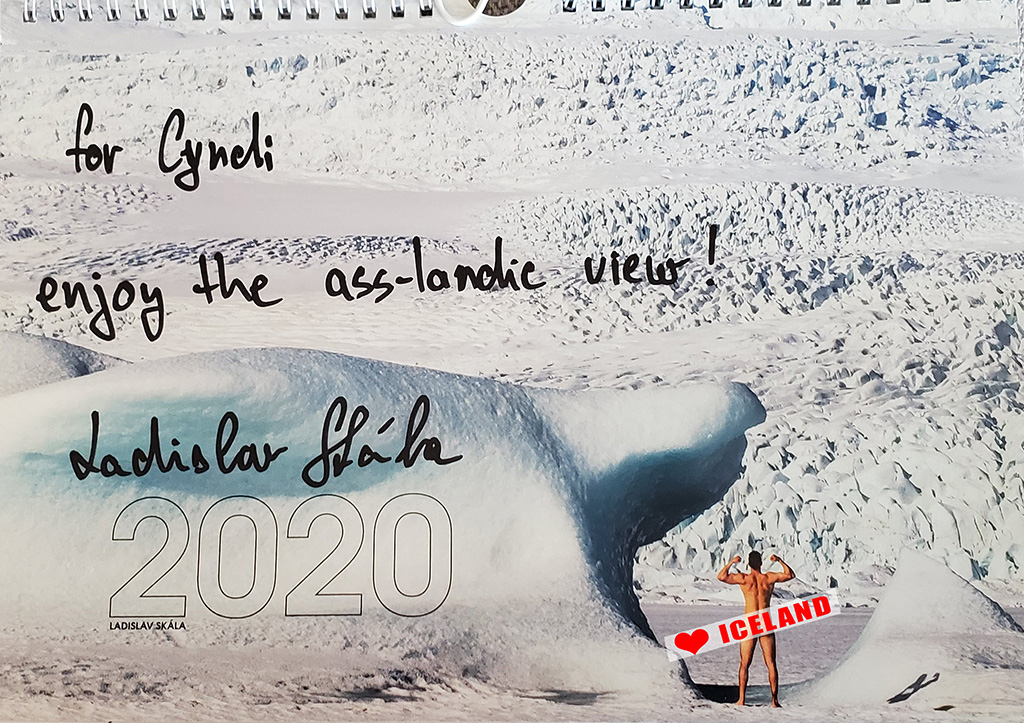 for Cyndi
enjoy the ass-landic view!
Ladislav Skála
2020
LADISLAV SKÁLA
❤ ICELAND